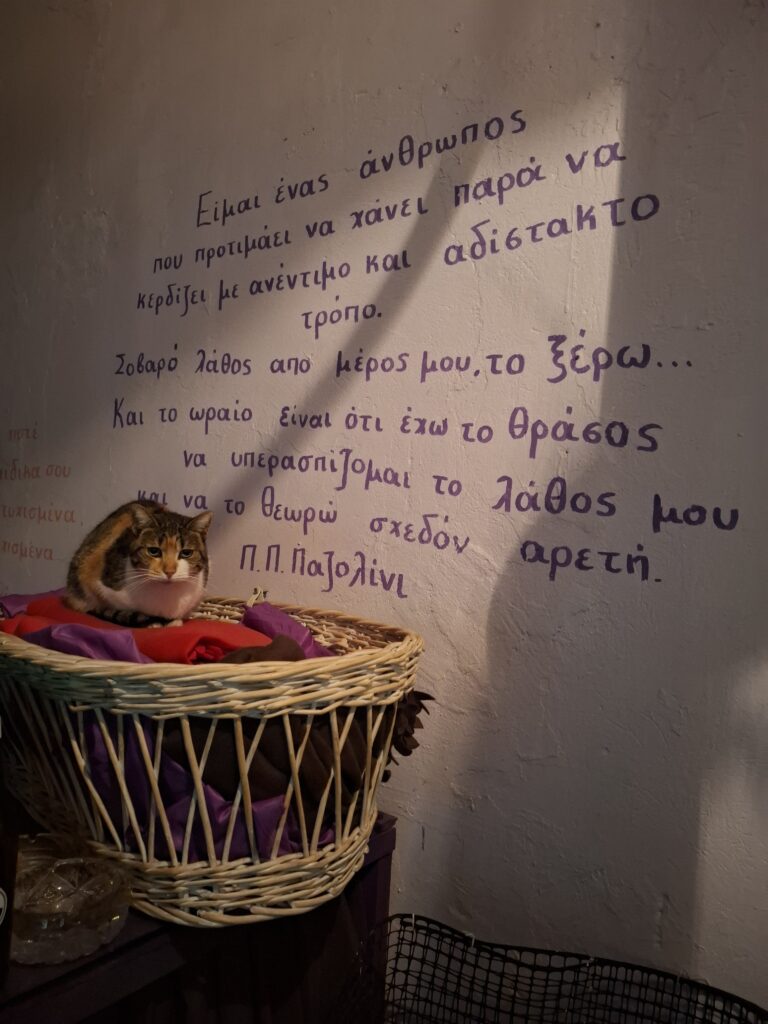 Είμαι ένας άνθρωπος
που προτιμάει να χάνει παρά να
κερδίζει με ανέντιμο και αδίστακτο
τρόπο.
Σοβαρό λάθος απο μέρος μου, το ξέρω...
Και το ωραίο είναι ότι έχω το θράσος
να υπερασπίζομαι το λάθος μου
και να το θεωρώ σχεδόν αρετή.
Π.Π. Παζολίνι
ποτέ
σου